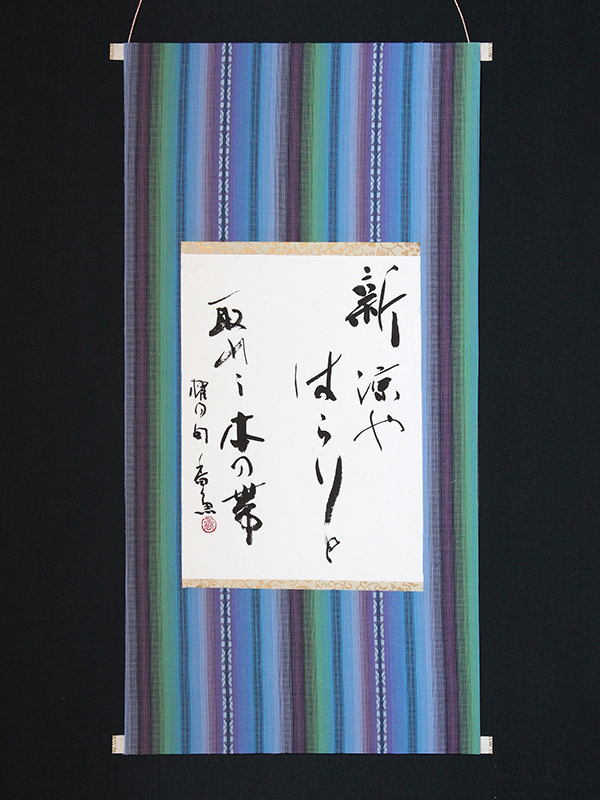 新涼や
はらりと
取れし本の帯
櫂の句